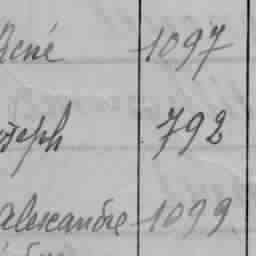 René 1097
Joseph 792
Alexandre 1099